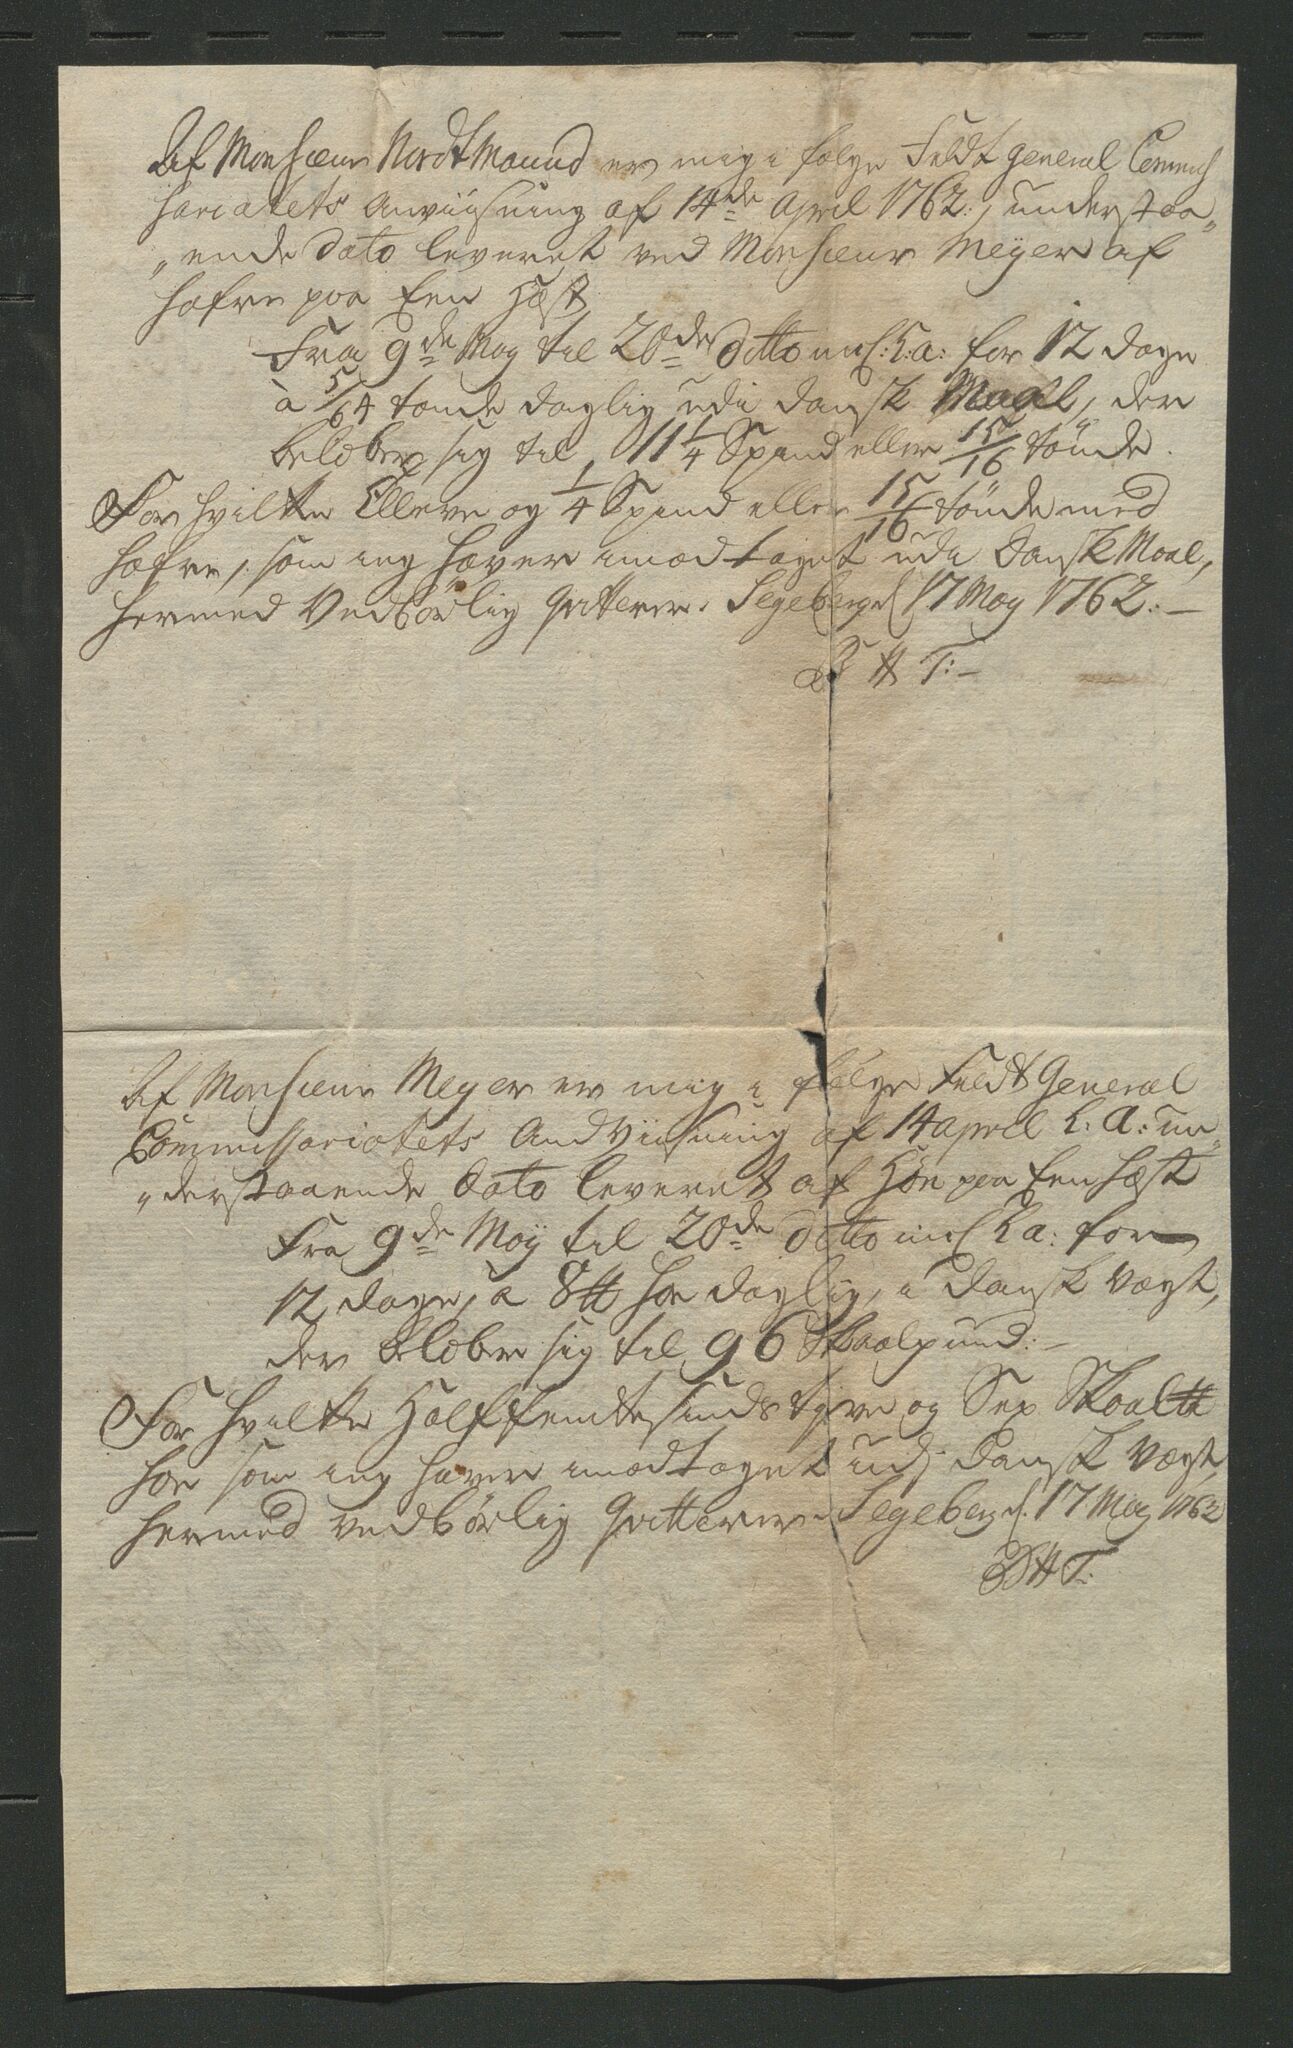 Af Monsieur Nordtmand er mig i følge Feldt General Commis
sariatets Anviisning af 14de April 1762:, understaa„
„ende dato leveret ved Monsieur Meÿer af
hafre paa Een Hæst,
Fra 9de Maÿ til 20de ditto incl: h: a: for 12 dage
à 5/64 tønde daglig udi dansk Maal, der
beløber sig til 11 1/4 Spand eller 15/16 tønde.
For hvilke Elleve og 1/4 Spand eller 15/16 tønde med
hafre, som ieg haver imodtaget udi Dansk Maal,
hermed Vedbørlig qvitterer. Segeberg d 17 May 1762:—
B H T:—
Af Monsieur Meyer er mig i følge Feldt General
Commissariatets Andviisning af 14 april h: a: un„
„derstaaende dato leveret af Høe paa Een Hæst
Fra 9de Maÿ til 20de ditto incl h a: for
12 dage, a 8 ℔ høe daglig, i dansk vægt,
der beløber sig til 96 Skaalpund:—
For hvilke Halffemtesindstyve og Sex Skaal℔
høe som ieg haver imodtaget udj dansk vægt,
hermed vedbørlig qvitterer. Segeberg d. 17 May 1762
B H T: